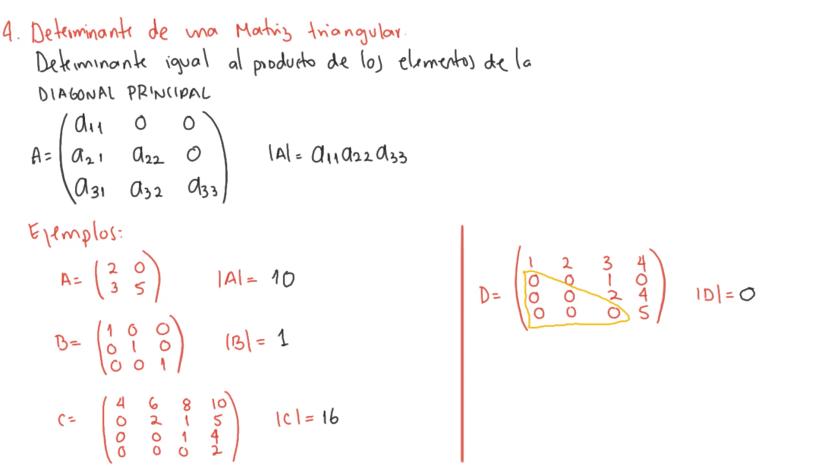 4. Determinante de una Matriz triangular.
Determinante igual al producto de los elementos de la
DIAGONAL PRINCIPAL
a11 0 0
A= a21 a22 0 |A|= a11 a22 a33
a31 a32 a33
Ejemplos:
2 0
A= |A|= 10
3 5
1 0 0
B= 0 1 0 |B|= 1
0 0 1
4 6 8 10
C= 0 2 1 5 |C|= 16
0 0 1 4
0 0 0 2
1 2 3 4
0 0 1 0
D= 0 0 2 4 |D|= 0
0 0 0 5